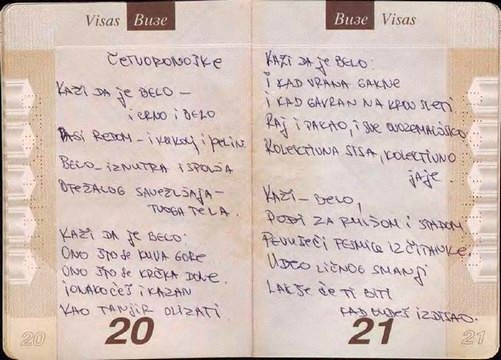 Visas Визе
ČETVORONOŠKE
KAŽI DA JE BELO –
I CRNO I BELO
PASI REDOM – I KUKOLJ I PELIN.
BELO – IZNUTRA I SPOLJA
OTEŽALOG SAUČEŠĆA –
TVOGA TELA.
KAŽI DA JE BELO:
ONO ŠTO SE KUVA GORE
ONO ŠTO SE KRČKA DOLE.
IONAKO ĆEŠ I KAZAN
KAO TANJIR OLIZATI.
20 20
Визе Visas
KAŽI DA JE BELO:
I KAD VRANA GAKNE
I KAD GAVRAN NA KROV SLETI
RAJ I PAKAO, I SVE OVOZEMALJSKO
KOLEKTIVNA SISA, KOLEKTIVNO
JAJE.
KAŽI – BELO,
POĐI ZA RULJOM I STADOM
PEVUJEĆI PESMICE IZ ČITANKE.
UDEO LIČNOG SMANJI
LAKŠE ĆE TI BITI
KAD BUDEŠ IZDISAO.
21 21